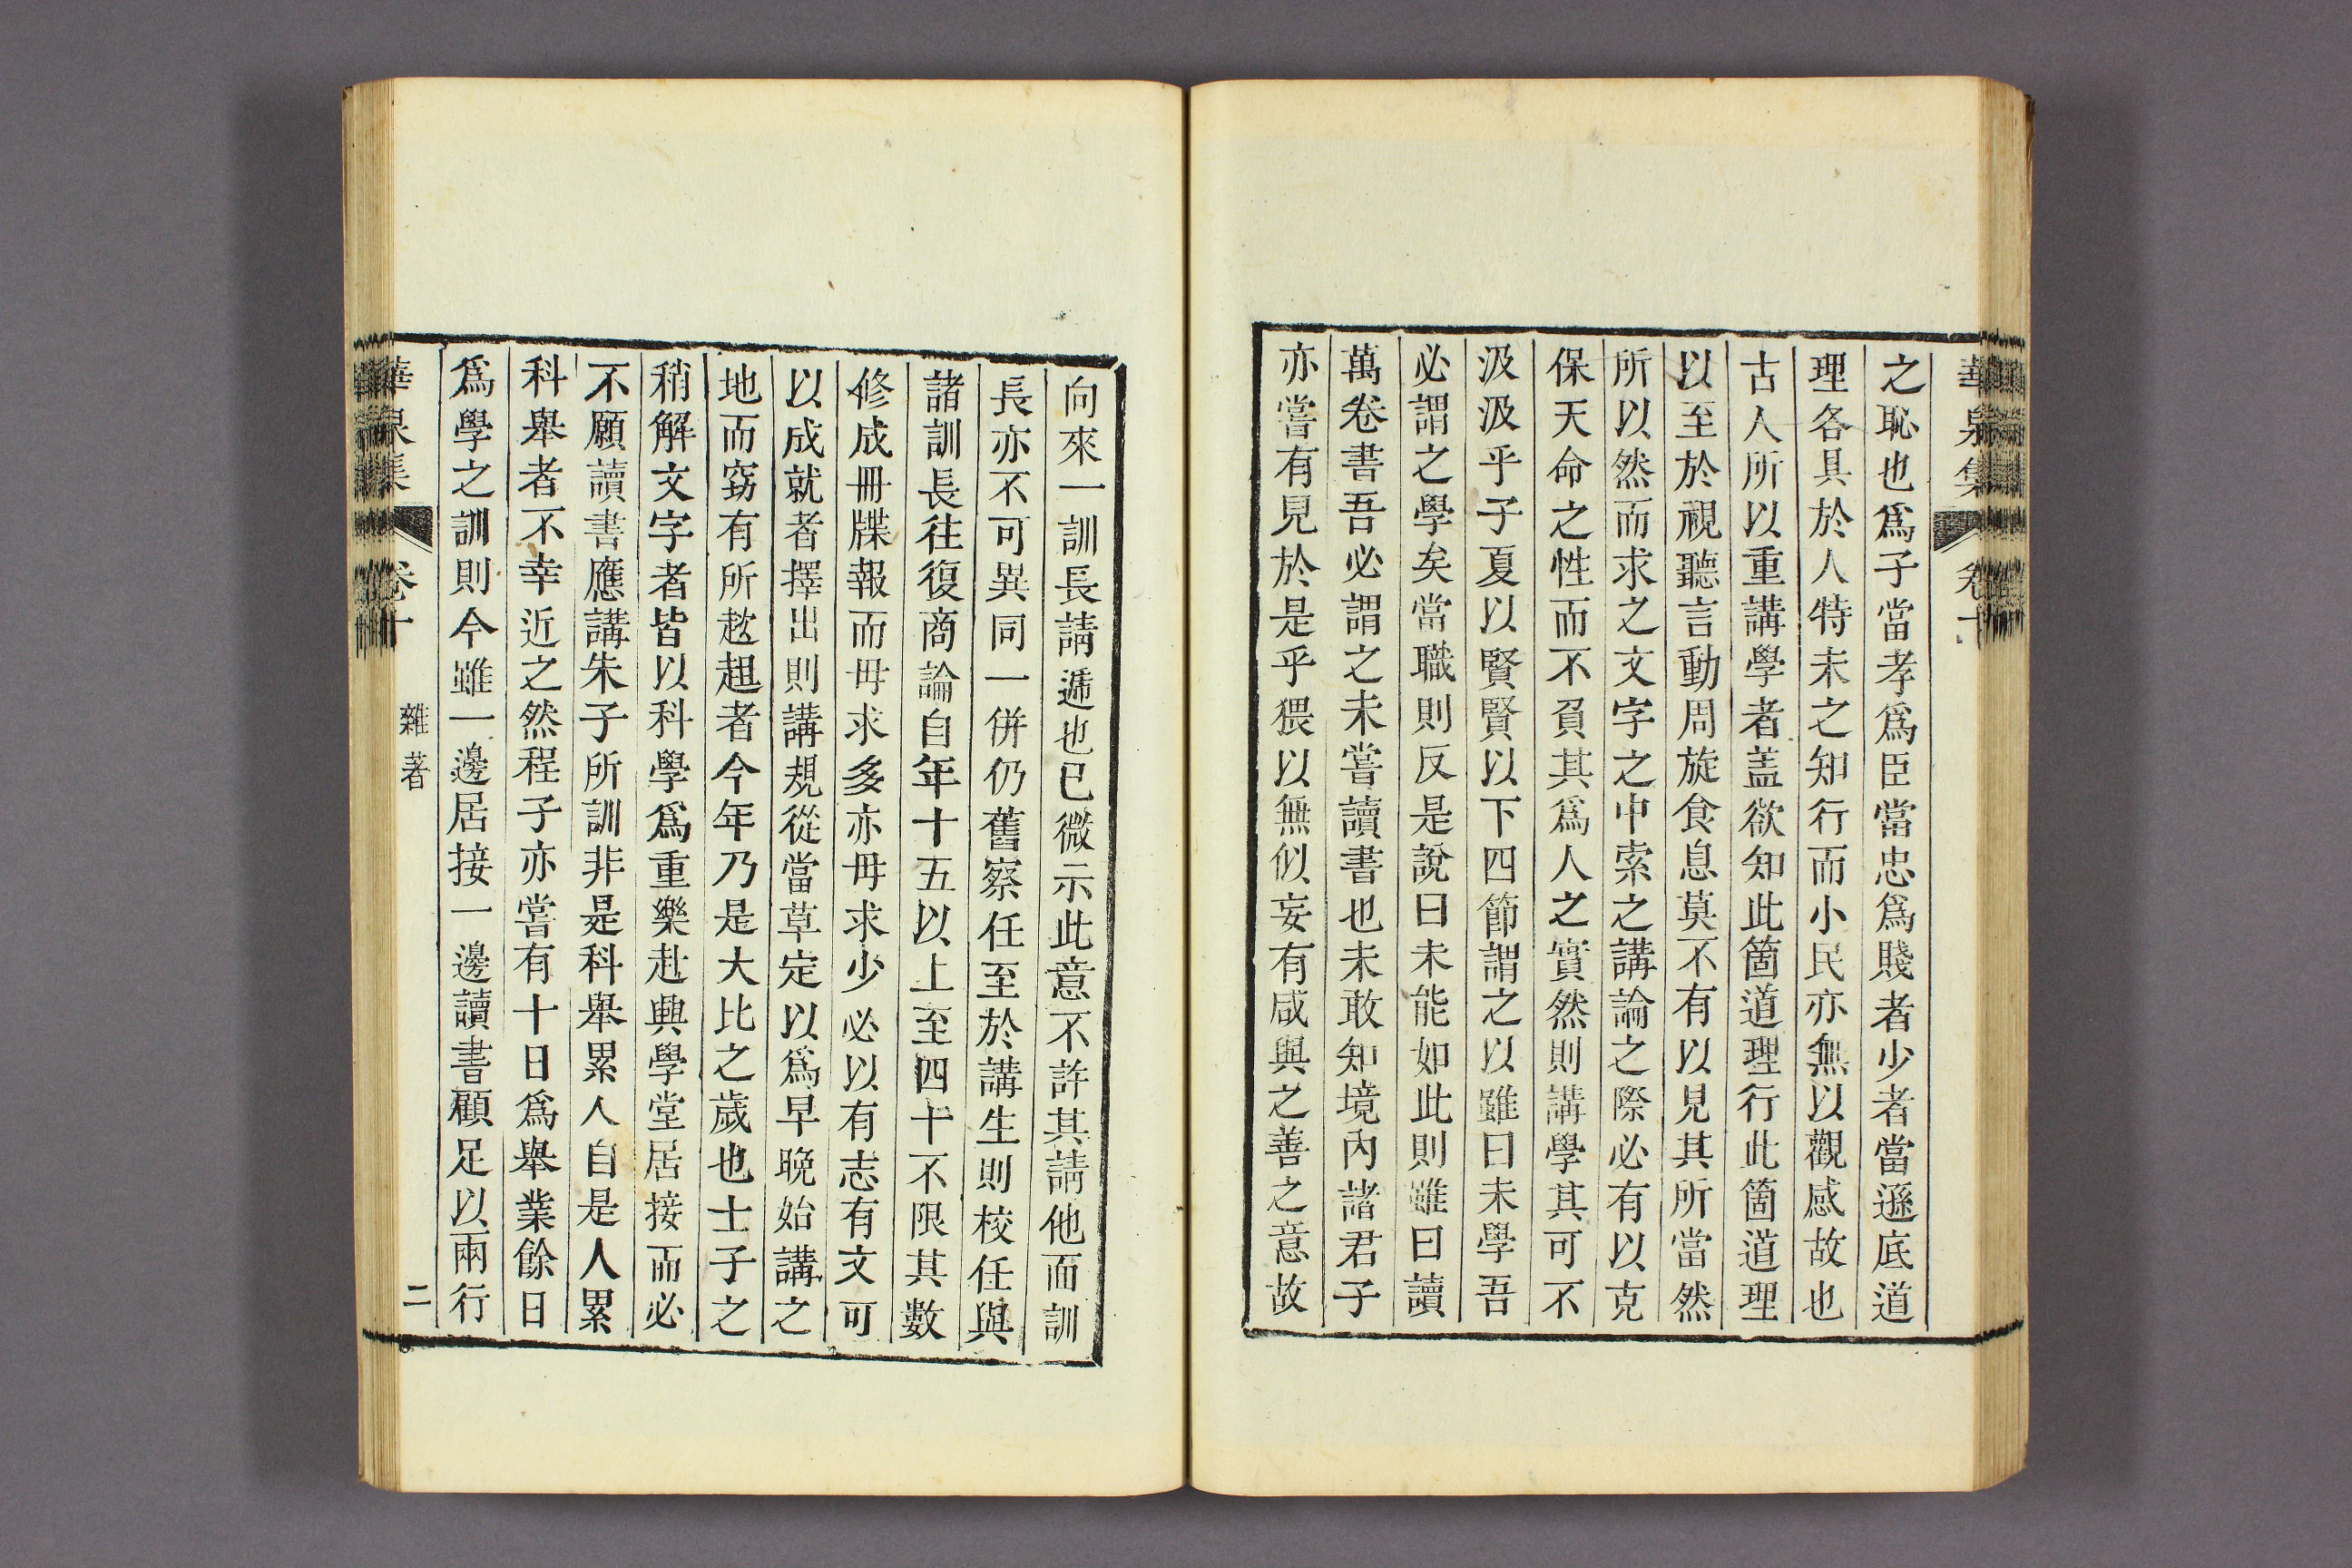 華泉集 卷十
之恥也爲子當孝爲臣當忠爲賤者少者當遜底道
理各具於人特未之知行而小民亦無以觀感故也
古人所以重講學者盖欲知此箇道理行此箇道理
以至於視聽言動周旋食息莫不有以見其所當然
所以然而求之文字之中索之講論之際必有以克
保天命之性而不負其爲人之實然則講學其可不
汲汲乎子夏以賢賢以下四節謂之以雖曰未學吾
必謂之學矣當職則反是說曰未能如此則雖曰讀
萬卷書吾必謂之未嘗讀書也未敢知境內諸君子
亦嘗有見於是乎猥以無似妄有咸與之善之意故
向來一訓長請遞也已微示此意不許其請他面訓
長亦不可異同一倂仍舊察任至於講生則校任與
諸訓長往復商論自年十五以上至四十不限其數
修成冊牒報而毋求多亦毋求少必以有志有文可
以成就者擇出則講規從當草定以爲早晚始講之
地而窃有所趑趄者今年乃是大比之歲也士子之
稍解文字者皆以科學爲重樂赴興學堂居接而必
不願讀書應講朱子所訓非是科舉累人自是人累
科舉者不幸近之然程子亦嘗有十日爲舉業餘日
爲學之訓則今雖一邊居接一邊讀書顧足以兩行
華泉集 卷十 雜著 二